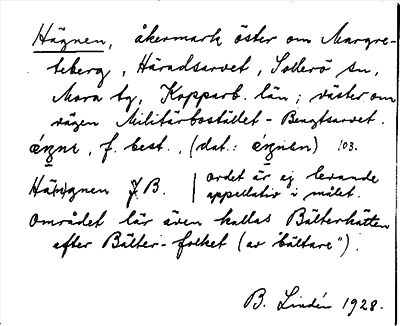 Hägnen, åkermark öster om Margre-
teberg, Häradsarvet, Sollerö sn,
Mora tg, Kopparb. län; väster om
vägen Militärbostället - Bengtsarvet.
ǽgnę, f. best., (dat.: ǽgnęn) 103.
Hä(n)gnen B. | ordet är ej levande
appellativ i målet.
Området lär även kallas Bälterhätten
efter Bälter-folket (av "bältare").
B. Lindén 1928.